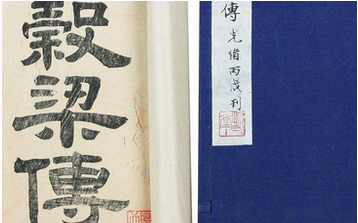 穀梁傳
傳 光緒丙戌刋